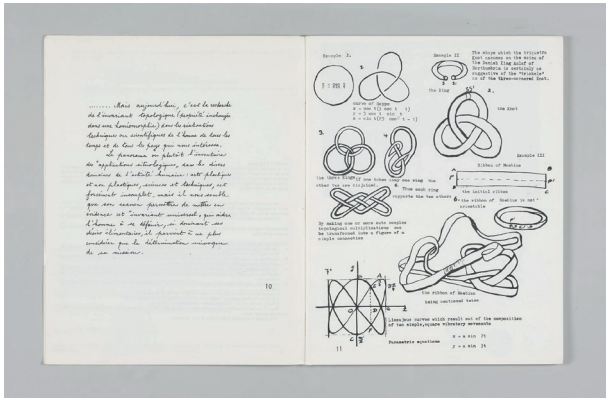 ........ Mais aujourd'hui, c'est la recherche
de l'invariant topologique (propriété inchangée
dans une homéomorphie) dans les réalisations
techniques ou scientifiques de l'homme de tous les
temps et de tous les pays qui nous intéresse.
Le panorama ou plutôt l'inventaire
des applications dans les divers
domaines de l'activité humaine: art plastique
et non plastique, sciences et techniques, est
forcément incomplet, mais il nous semble
que son examen permettra de mettre en
évidence cet invariant universel, qui aidera
l'homme à se définir, en dominant ses
désirs élémentaires, il parvient à ne plus
considérer que la détermination
de sa mesure.
10
Example I.
1.
2.
curve of Hagge
3.
4.
the three Rings
if one takes away one ring the
other two are disjoined.
5. Thus each ring
supports the two others
By making one or more cuts complex
topological multiplications can
be transformed into a figure of a
simple connection
Example II
The shape which the triquetra
knot assumes on the coins of
the Danish King Anlaf of
Northumbria is certainly as
suggestive of the "triskele"
as of the three-cornered Knot.
the Ring
2.
the Knot
Example III
Ribbon of Moebius
the initial ribbon
the ribbon of Moebius is not
orientable
the ribbon of Moebius
being sectioned twice
Lissajous curves which result out of the composition
of two simple, square vibratory movements
Parametric equations
x = a sin 2t
y = a sin 3t
11